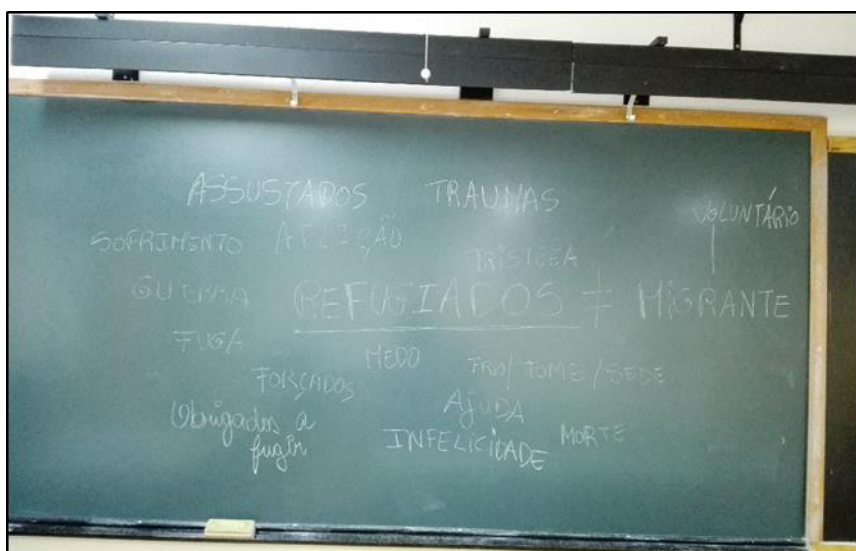 ASSUSTADOS TRAUMAS
VOLUNTÁRIO
SOFRIMENTO AFLIÇÃO
GUERRA REFUGIADOS ≠ MIGRANTE
FUGA
MEDO
FORÇADOS FRIO/FOME/SEDE
AJUDA
Obrigados a
fugir
INFELICIDADE MORTE